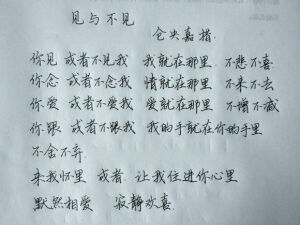 见与不见
仓央嘉措.
你见 或者不见我 我就在那里. 不悲不喜
你念 或者不念我 情就在那里 不来不去
你爱 或者不爱我 爱就在那里. 不增不减
你跟 或者不跟我 我的手就在你的手里
不舍不弃.
来我怀里 或者 让我住进你心里
默然相爱 寂静欢喜.